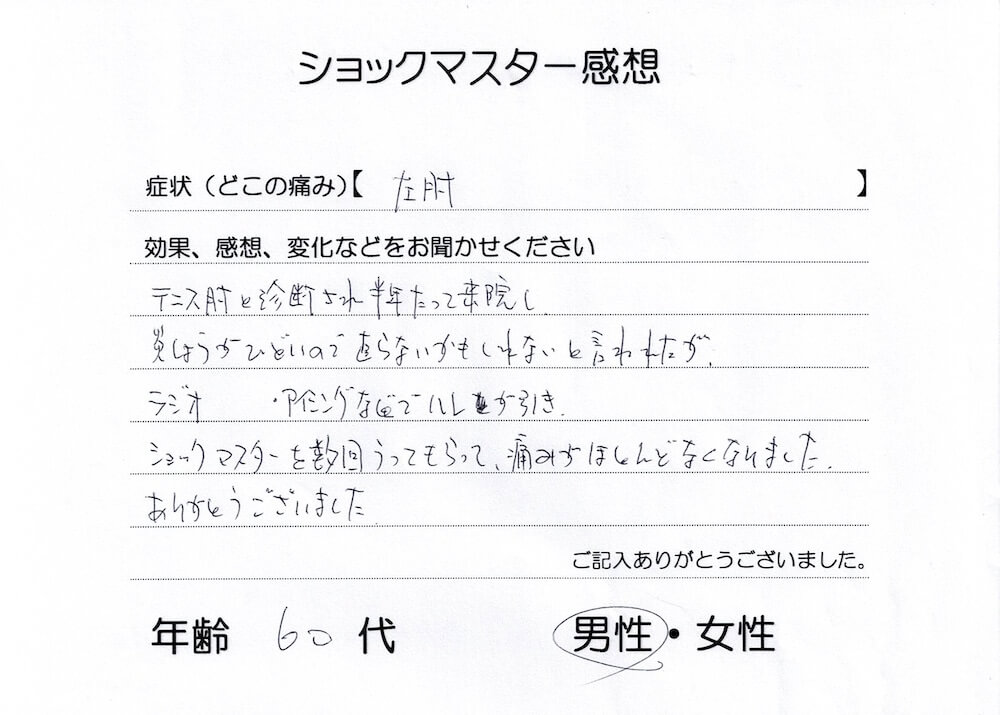 ショックマスター感想
症状（どこの痛み）【 左肘 】
効果、感想、変化などをお聞かせください
テニス肘と診断され半年たって来院し
炎しょうがひどいので直らないかもしれないと言われたが、
ラジオ ・アイシングなどでハレが引き、
ショックマスターを数回うってもらって、痛みがほとんどなくなりました。
ありがとうございました
ご記入ありがとうございました。
年齢 60 代 男性・女性